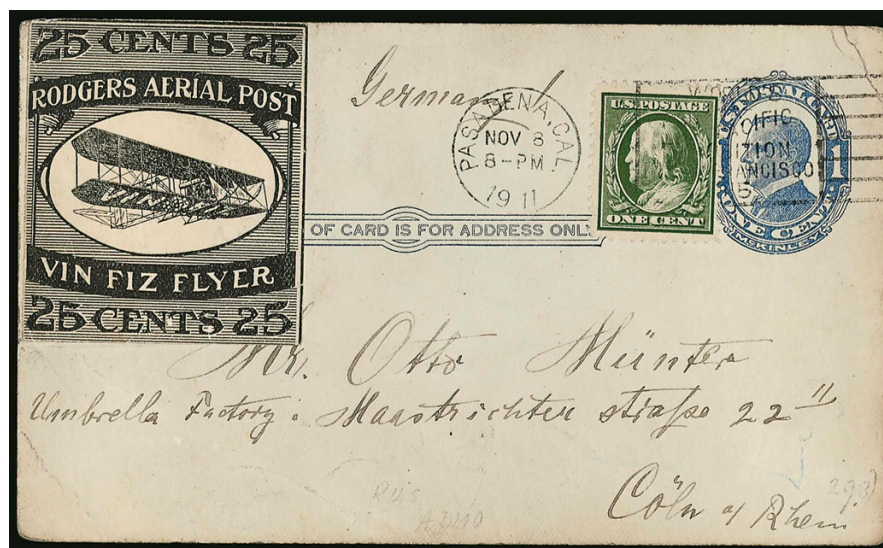 25 CENTS 25
RODGERS AERIAL POST
VIN FIZ
VIN FIZ FLYER
25 CENTS 25
Germany
PASADENA, CAL.
NOV 8
8-PM
1911
U.S. POSTAGE
ONE CENT
WORLD'S
CIFIC
ITION
ANCISCO
5
1
ONE CENT
McKINLEY
OF CARD IS FOR ADDRESS ONLY
Mr. Otto Münter
Umbrella Factory. Maastrichter straße 22 II
Cöln a/ Rhein